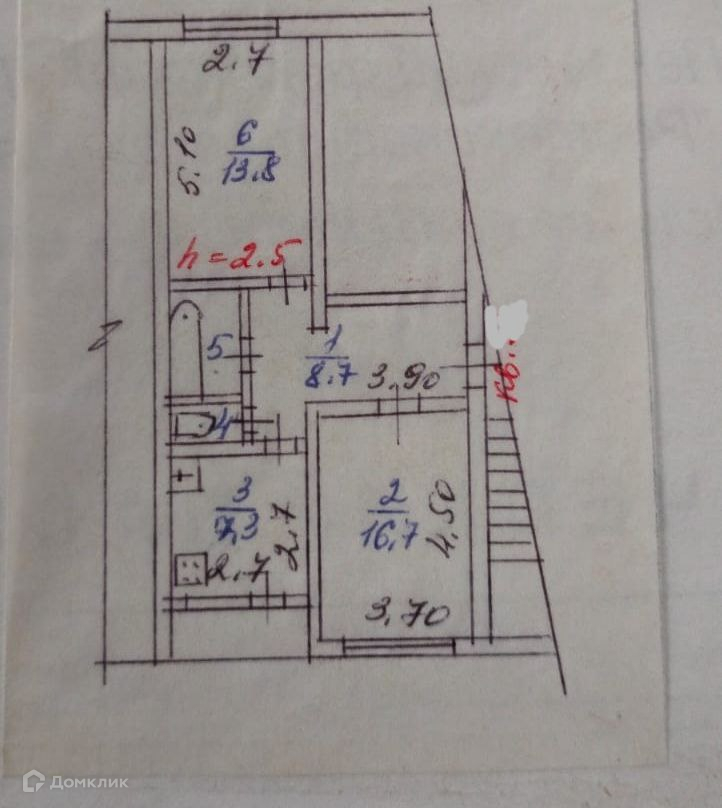 2.7
5.10
6
13.8
h=2.5
5
1
8.7
3.90
кв.
4
3
7,3
2.7
2.7
2
16,7
4.50
3,70
Домклик